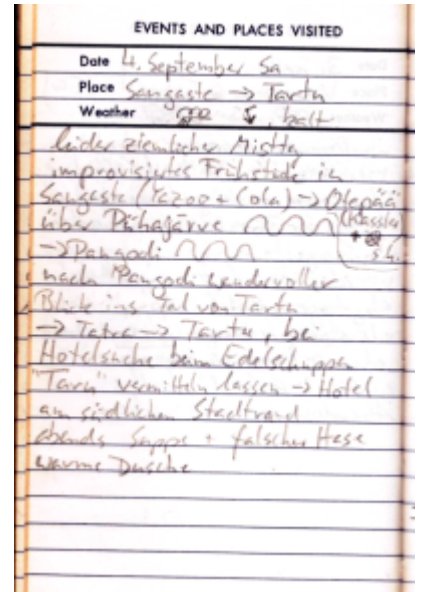 EVENTS AND PLACES VISITED
Date 4. September Sa
Place Sangaste → Tartu
Weather kalt
leider ziemlicher Misttag
improvisiertes Frühstück in
Sangaste (Yazoo + Cola) → Otepää
über Pühajärve (Kassler
→ Pangodi
nach Pangodi wundervoller
Blick ins Tal von Tartu
→ Tatra → Tartu, bei
Hotelsuche beim Edelschuppen
"Taru" vermitteln lassen → Hotel
am südlichen Stadtrand
abends Suppe + falscher Hase
warme Dusche